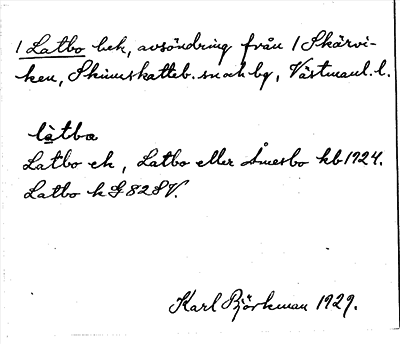 1 Latbo heh, avsöndring från 1 Skärvi-
ken, Skinnskatteb. sn oh bg, Västmanl. l.
làtbo
Latbo ek, Latbo eller Åmesbo kb 1924.
Latbo h G 828 V.
Karl Björkman 1929.